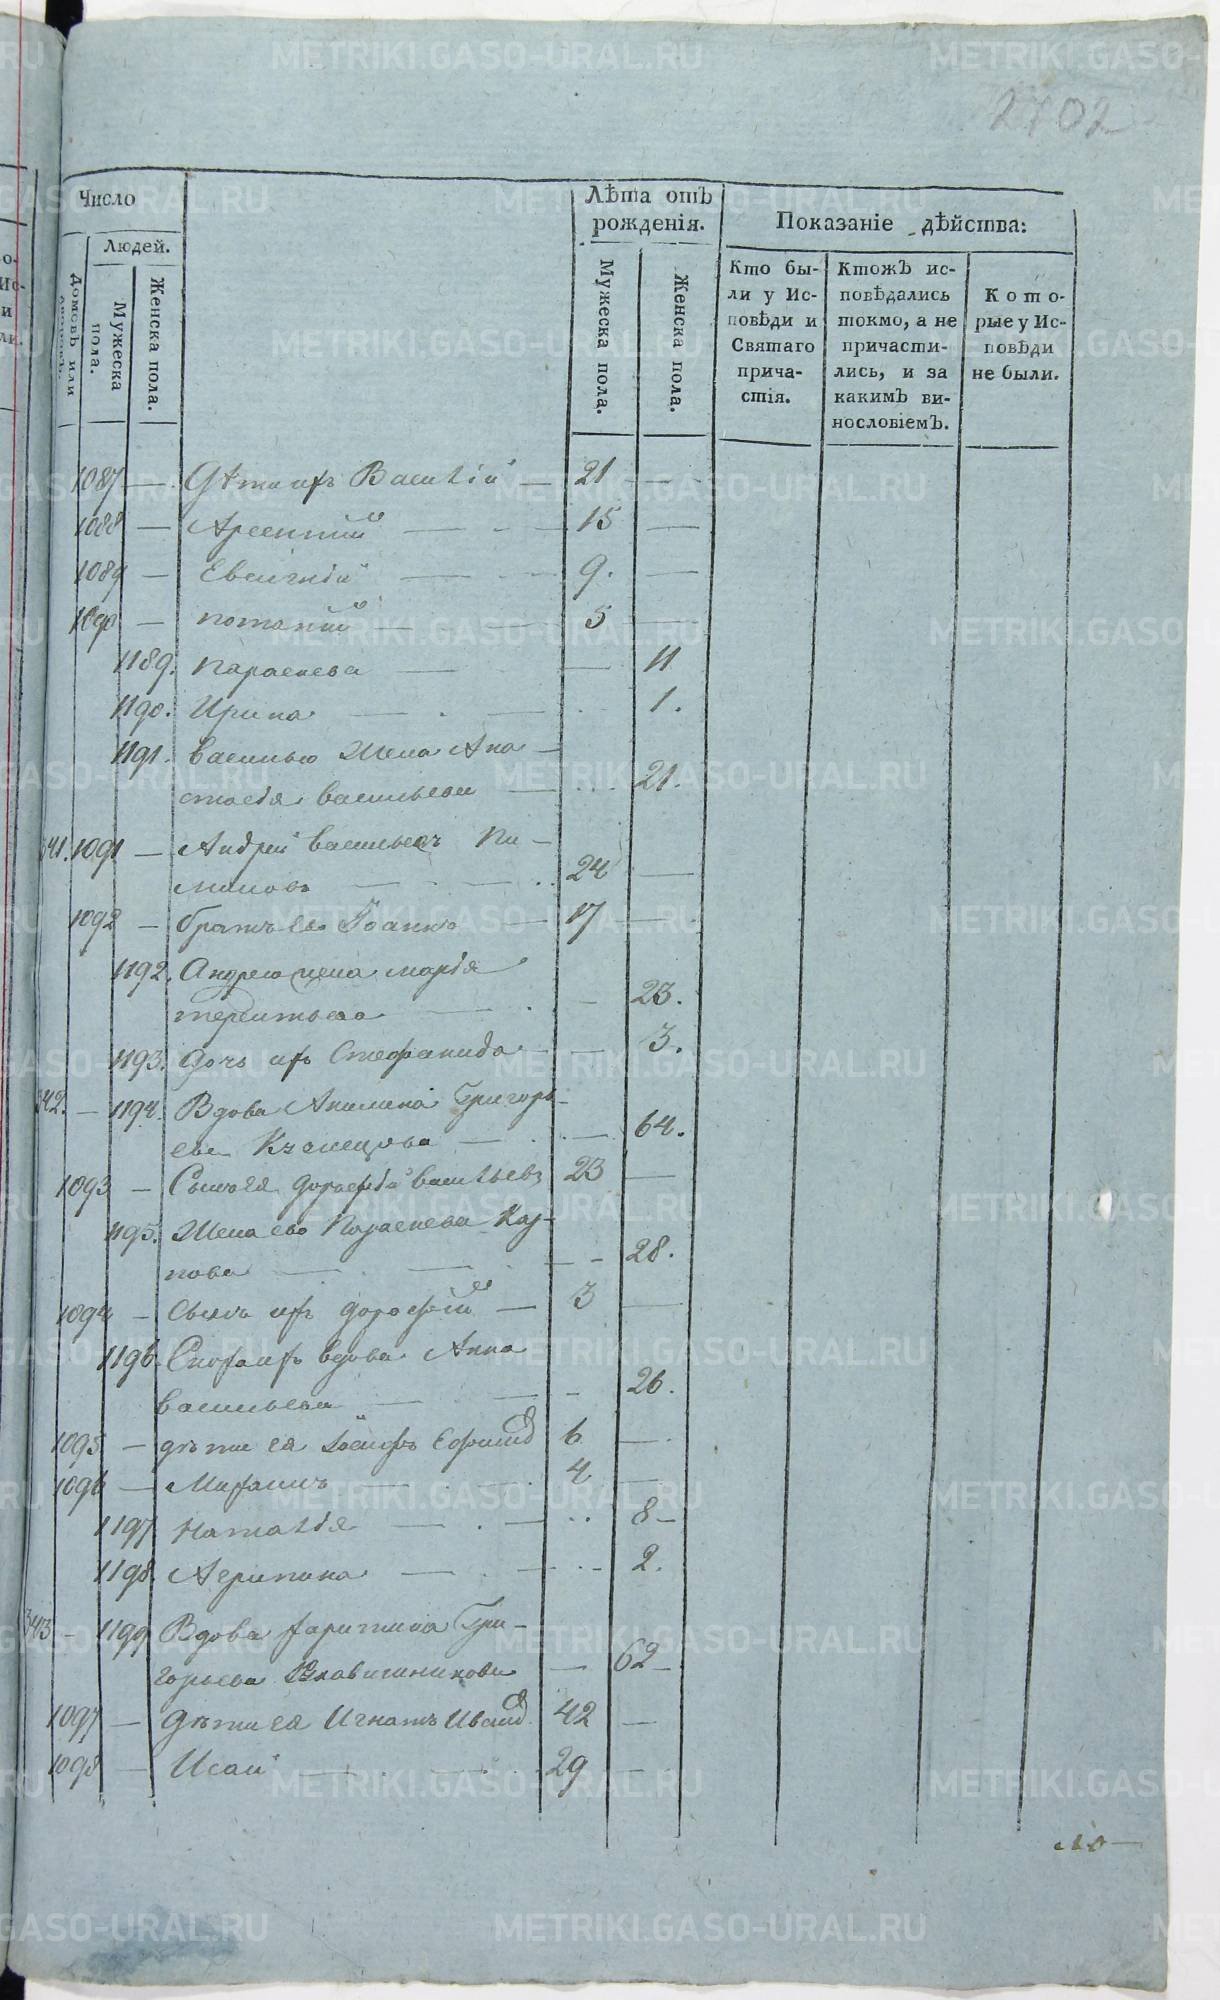 2702
Число
Людей.
Домовъ или дворовъ.
Мужеска пола.
Женска пола.
Лѣта отъ рожденія.
Мужеска пола.
Женска пола.
Показаніе дѣйства:
Кто бы-
ли у Ис-
повѣди и
Святаго
прича-
стія.
Ктожъ ис-
повѣдались
токмо, а не
причасти-
лись, и за
какимъ ви-
нословіемъ.
Кото-
рые у Ис-
повѣди
не были.
1087 — Дѣти ихъ Василій — 21 —
1088 — Арсентий — 15 —
1089 — Евсигнiй — 9. —
1090 — потапий — 5 —
1189. Параскева — 11
1190. Ирина — 1.
1191. василью Жена Ана-
стасія васильева — 21.
341. 1091 — Андрей васильевъ Пи-
миновъ — 24 —
1092 — братъ ево Іоаннъ — 17 —
1192. Андрею жена марія
терентьева — 23.
1193. Дочь ихъ Стефанида — 3.
342. — 1194. Вдова Акилина Григорь-
ева Кузнецова — 64.
1093 — Сынъ ея Дорофѣй васильевъ 23 —
1195. Жена ево Параскева Кар-
пова — 28.
1094 — Сынъ ихъ Дорофѣй — 3 —
1196. Сноха ихъ вдова Анна
васильева — 26.
1095 — дѣти ея Іосифъ Ефимов 6 —
1096 — Михаилъ — 4 —
1197 Наталія — 8 —
1198. Агрипина — 2.
343 — 1199 Вдова харитина Гри-
горьева — 62 —
1097 — Дѣти ея Игнатъ Иванов 42 —
1098 — Исаи — 29 —